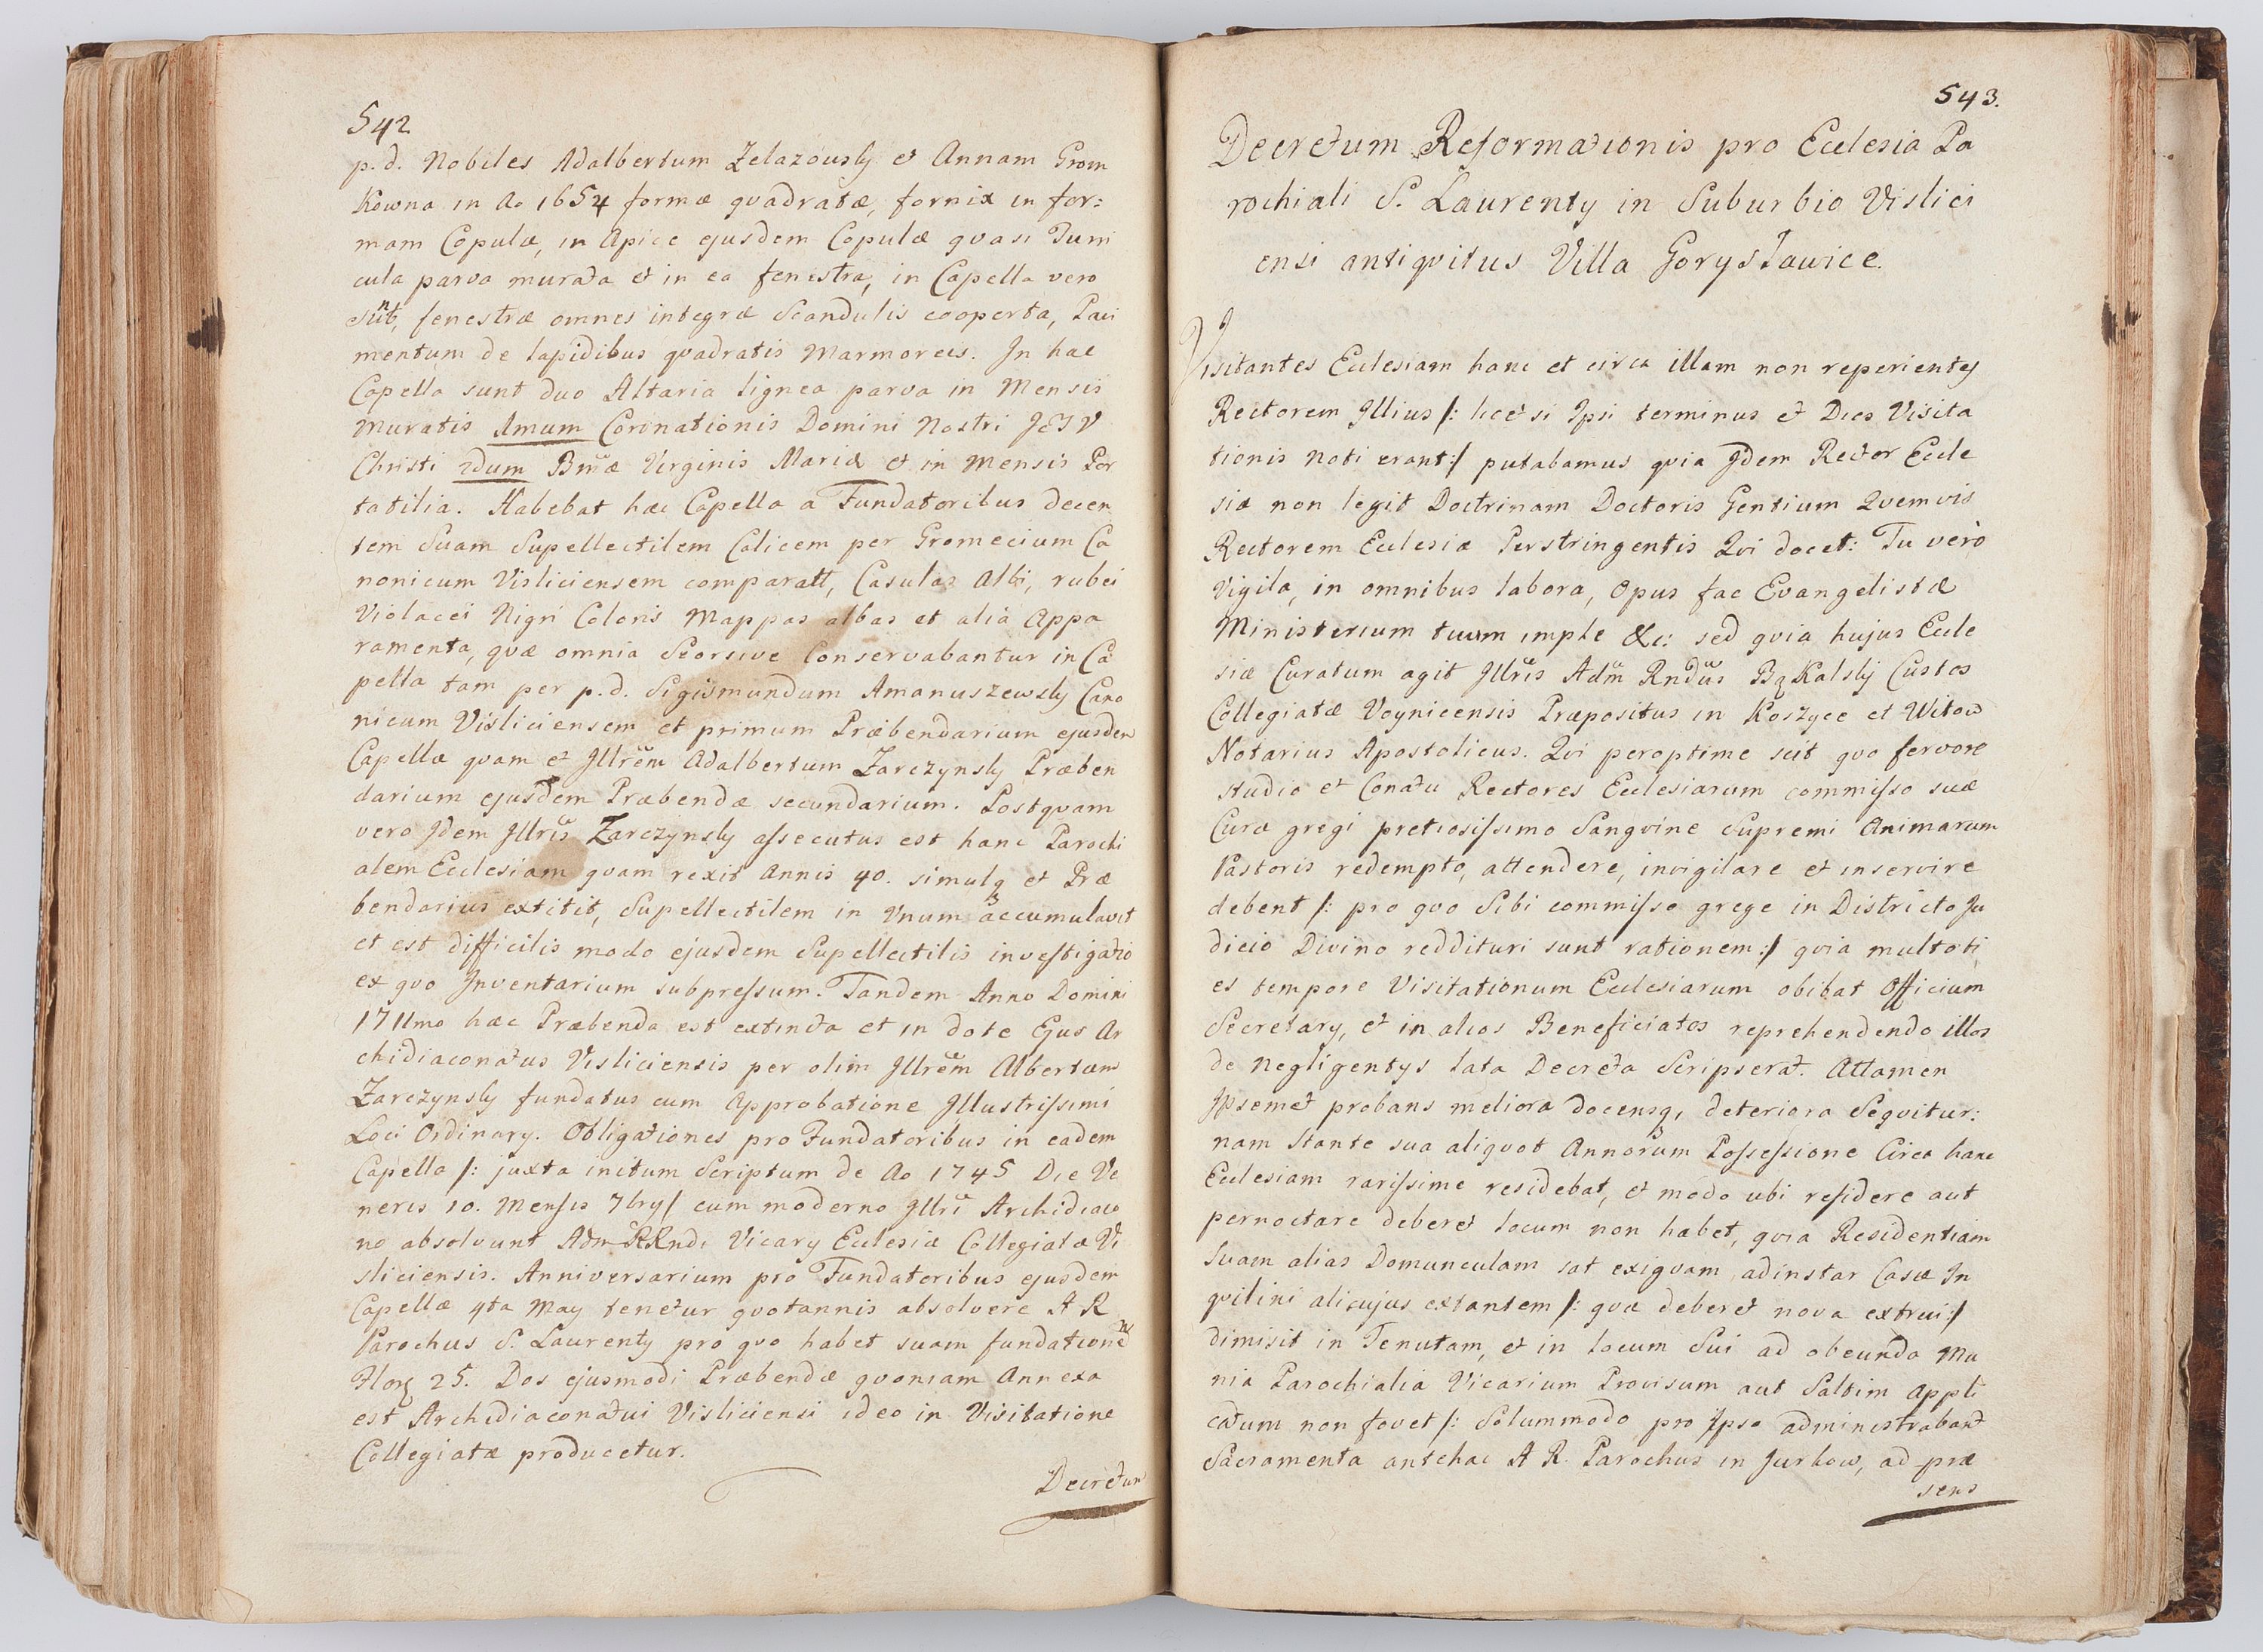 542
p.d. Nobiles Adalbertum Zelazowsky et Annam Grom
kowna in Ao 1654 formæ qvadratæ, fornix in for:
mam Copulæ, in Apice ejusdem Copulæ qvasi Turri
cula parva murata et in ea fenestra, in Capella vero
sunt, fenestræ omnes integræ Scandulis cooperta, Pavi
mentum de lapidibus qvadratis Marmoreis. In hac
Capella sunt duo Altaria lignea parva in Mensis
Muratis 1mum Coronationis Domini Nostri JESV
Christi 2dum Bmæ Virginis Mariæ et in Mensis Por
tatilia. Habebat hæc Capella a Fundatoribus decen
tem Suam Supellectilem Calicem per Gromecium Ca
nonicum Visliciensem comparatt, Casulas Albi, rubei
Violacei Nigri Coloris Mappas albas et alia Appa
ramenta, qvæ omnia Seorsive Conservabantur in Ca
pella tam per p.d. Sigismundum Amanuszewsky Cano
nicum Visliciensem et primum Præbendarium ejusdem
Capellæ qvam et Jllrem Adalbertum Zarczynsky Præben
darium ejusdem Præbendæ secundarium. Postqvam
vero Jdem Jllris Zarczynsky assecutus est hanc Parochi
alem Ecclesiam qvam rexit Annis 40. simulq et Præ
bendarius extitit, Supellectilem in Vnum accumulavit
et est difficilis modo ejusdem Supellectilis investigatio
ex qvo Inventarium subpressum. Tandem Anno Domini
1711mo hæc Præbenda est extincta et in dote Ejus Ar
chidiaconatus Visliciensis per olim Jllrem Albertum
Zarczynsky fundatus cum Approbatione Jllustrissimi
Loci Ordinary. Obligationes pro Fundatoribus in eadem
Capella /: juxta initum Scriptum de Ao 1745 Die Ve
neris 10. Mensis 7bry/ cum moderno Jllri Archidiaco
no absolvunt Adm RRndi Vicary Ecclesiæ Collegiatæ Vi
sliciensis. Anniversarium pro Fundatoribus ejusdem
Capellæ 4ta May tenetur qvotannis absolvere A R
Parochus S. Laurenty pro qvo habet suam fundationem
Flor 25. Dos ejusmodi Præbendæ qvoniam Annexa
est Archidiaconatui Visliciensi ideo in Visitatione
Collegiatæ producetur.
Decretum
543.
Decretum Reformationis pro Ecclesia Pa
rochiali S. Laurenty in Suburbio Vislici
ensi antiqvitus Villa Gorysławice.
Visitantes Ecclesiam hanc et circa illam non reperientes
Rectorem Jllius /: licet si Ipsi terminus et Dies Visita
tionis Noti erant:/ putabamus qvia Jdem Rector Eccle
siæ non legit Doctrinam Doctoris Gentium Qvemvis
Rectorem Ecclesiæ Perstringentis Qvi docet: Tu verò
Vigila, in omnibus labora, Opus fac Evangelistæ
Ministerium tuum imple &c: sed qvia hujus Eccle
siæ Curatum agit Jllris Adm Rndus Bąkalsky Custos
Collegiatæ Voynicensis Præpositus in Koszyce et Witow
Notarius Apostolicus. Qvi peroptime scit qvo fervore
studio et Conatu Rectores Ecclesiarum commisso suæ
Curæ gregi pretiosissimo Sangvine Supremi Animarum
Pastoris redempto, attendere, invigilare et inservire
debent /: pro qvo Sibi commisso grege in Districto Ju
dicio Divino reddituri sunt rationem:/ qvia multoti
es tempore Visitationum Ecclesiarum obibat Officium
Secretary, et in alios Beneficiatos reprehendendo illos
de Negligentys lata Decreta Scripserat. Attamen
Ipsemet probans meliora docensq, deteriora Seqvitur:
nam Stante sua aliqvot Annorum Possessione Circa hanc
Ecclesiam rarissime residebat, et modo ubi residere aut
pernoctare deberet locum non habet, qvia Residentiam
Suam alias Domunculam sat exigvam, adinstar Casæ In
qvilini alicujus extantem /: qvæ deberet nova extrui:/
dimisit in Tenutam, et in locum Sui ad obeunda Mu
nia Parochialia Vicarium Provisum aut Saltim Appli
catum non fovet /: Solummodo pro Ipso administrabant
Sacramenta antehac A R. Parochus in Jurkow, ad præ
sens